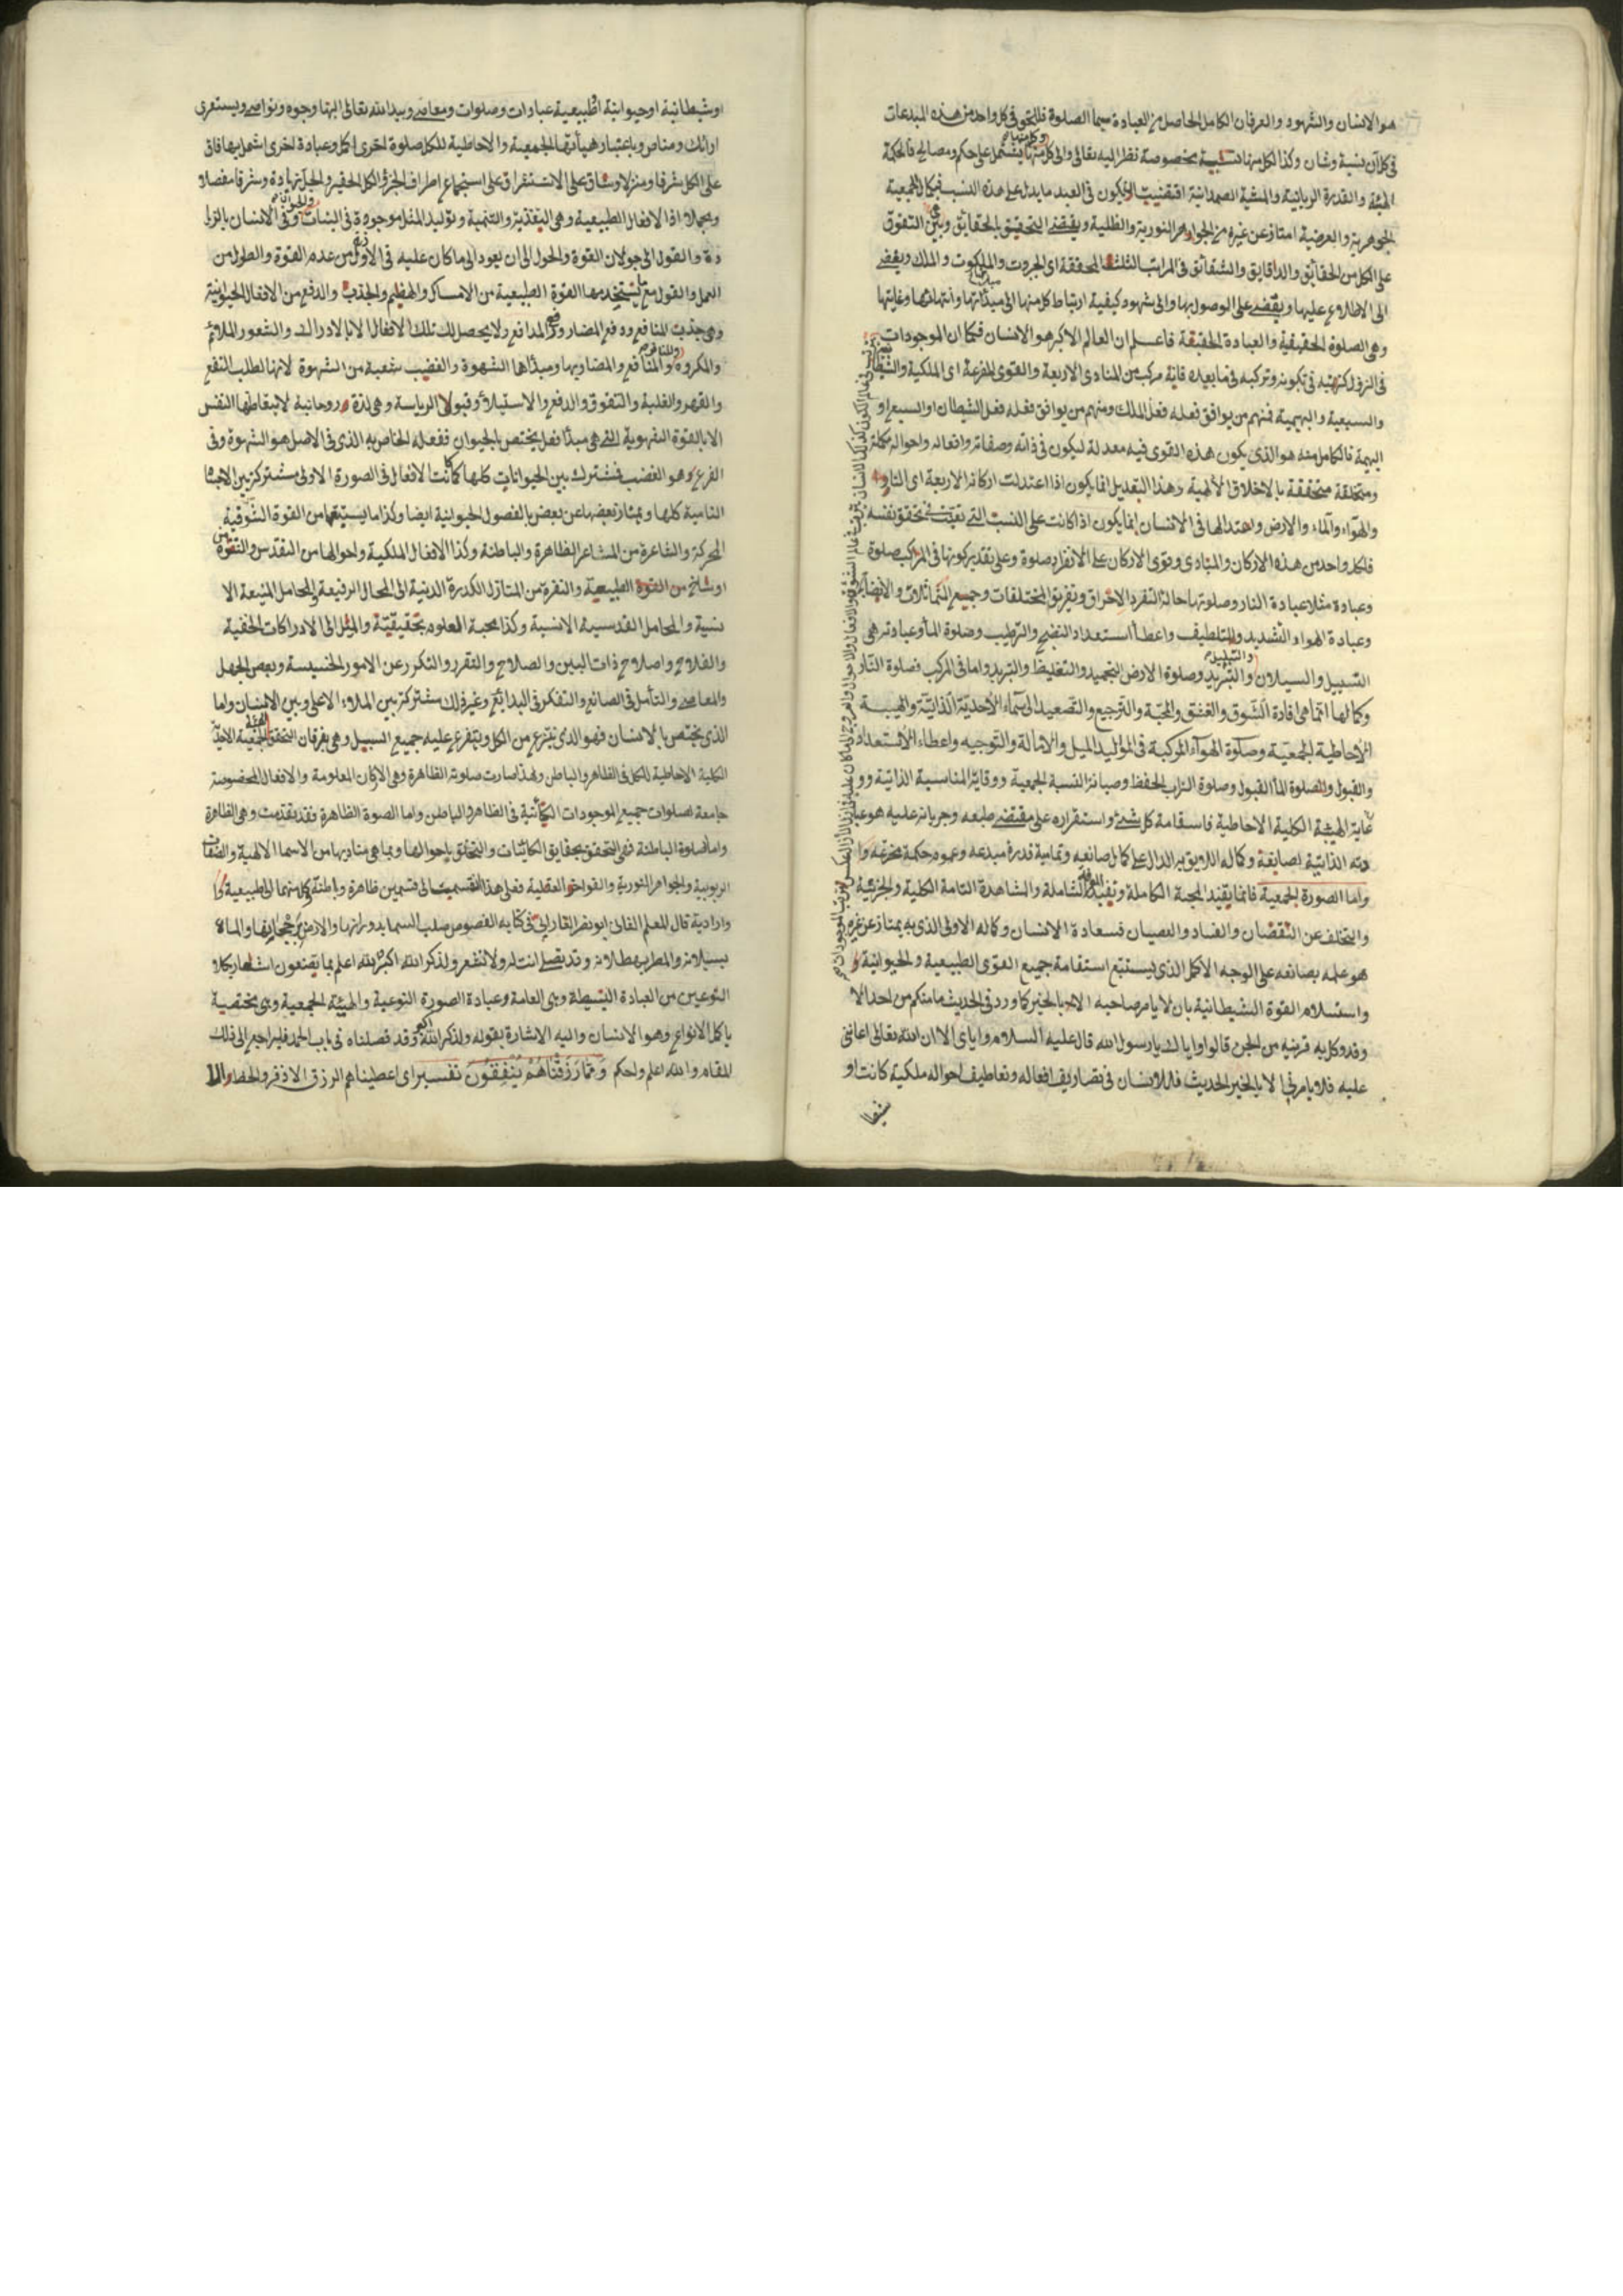 هو الانسان والشهود والعرفان الكامل الحاصل من العبادة سيما الصلوة فللحق فى كل واحد من هذه المبدعات
فى كل آن نسبة وشان وكذا لكل منها نسبة مخصوصة نظرا اليه تعالى والى كل منها يشتمل على حكم ومصالح فالحكمة
والقدرة الربانية والمشية الصمدانية اقتضت ان يكون فى العبد ما يدل على هذه النسب فبكمال الجمعية
الجوهرية والعرضية امتاز عن غيره من الجواهر النورية والظلية ويقتضى التحقيق بالحقائق وبين التفوق
على الكل من الحقائق والدقايق والشقائق فى المراتب الثلث المحققة اى الجبروت والملكوت والملك ويفضى
الى الاطلاع عليها ويقضى على الوصول بها والى شهود كيفية ارتباط كل منها الى مبدأتها وانتهائها وغايتها
وهى الصلوة الحقيقية والعبادة الحقيقة فاعلم ان العالم الاكبر هو الانسان فكما ان الموجودات
فى تكونه وتركبه فى ما بعده فانه مركب من المبادى الاربعة والقوى المفرعة اى الملكية والشيطانية
والسبعية والبهيمية فمنهم من يوافق فعله فعل الملك ومنهم من يوافق فعله فعل الشيطان او السبع او
البهيمة فالكامل منه هو الذى يكون هذه القوى فيه معدلة ليكون فى ذاته وصفاته وافعاله واحواله مكملة
ومتخلقة متحققة بالاخلاق الالهية وهذا التعديل انما يكون اذا اعتدلت اركانه الاربعة اى النار و
والهواء والماء والارض واعتدالها فى الانسان انما يكون اذا كانت على النسب التى تعينت فى تحقق نفسه
فلكل واحد من هذه الاركان والمبادى وقوى الاركان على الانفراد صلوة وعلى تقدير كونها فى المركب صلوة
وعبادة مثلا عبادة النار وصلوتها حالة التفرد الاحراق وتفريق المختلفات وجميع التماثلات
وعبادة الهواء التشديد والتلطيف واعطأ استعداد النضج والترطيب وصلوة المأ وعبادته هى
التسييل والسيلان والتبريد وصلوة الارض التجميد والتغليظ والتبريد واما فى المركب فصلوة النار
وكمالها انما هى افادة الشوق والعشق والمحبة والترجيع والتصعيد الى سماء الأحدية الذاتية والهيبة
الأحاطية الجمعية وصلوة الهوآء المركبة فى المواليد الميل والامالة والتوجيه واعطاء الأستعداد
والقبول والصلوة المأ القبول وصلوة التراب الحفظ وصيانة النسبة الجمعية ووقاية المناسبة الذاتية و
غاية الهيئة الكلية الاحاطية فاستقامة كل شئ واستقراره على مقتضى طبعه وجريانه عليه هو عبا
دته الذاتية لصانعه وكماله اللايق به الدال على كمال صانعه وتمامية قدرة مبدعه وعموم حكمة مخترعه
واما الصورة الجمعية فانما يفيد المحبة الكاملة وتفيد الشاملة والشاهدة التامة الكلية والجزئية
والتخلف عن النقصان والفساد والعصيان فسعادة الانسان وكماله الاولى الذى به يمتاز عن غيره
هو علمه بصانعه على الوجه الاكمل الذى يستتبع استقامة جميع القوى الطبيعية والحيوانية
واستسلام القوة الشيطانية بان لا يامر صاحبه الا بالخير كما ورد فى الحديث ما منكم من احد الا
وقد وكل به قرينه من الجن قالوا واياك يا رسول الله قال عليه السلام واياى الا ان الله تعالى اعاننى
عليه فلا يامرنى الا بالخير الحديث فللانسان فى تصاريف افعاله وتعاطيف احواله ملكية كانت او
او شيطانية او حيوانية او طبيعية عبادات وصلوات ومعاصى وبيد الله تعالى وجوه ونواصى ويستعرى
وباعتبار هيأتها الجمعية والاحاطية للكل صلوة اخرى اكمل وعبادة اخرى اشمل بها فاق
على الكل شرفا ومنزلا وشاق على الاستغراق على استجماع اطراف الجزؤ الكل الحقير والجليل
ومجملا اذا الافعال الطبيعية وهى التغذية والتنمية وتوليد المثل موجودة فى النبات وفى الانسان بالارا
دة والقول الى جولان القوة والحول الى ان يعود الى ما كان عليه فى الاول من عدم القوة والطول من
العمل والقول مع تستخدمها القوة الطبيعية من الامساك والهضم والجذب والدفع من الافعال الحيوانية
وهى جذب المنافع ودفع المضار والمدافع ولا يحصل لك تلك الافعال الا بالادراك والشعور الملائم
والمكروه والمنافع والمضار وبها ومبدأها الشهوة والغضب شعبة من الشهوة لانها لطلب النفع
والقهر والغلبة والتفوق والدفع والاستيلاء وقبول الرياسة وهى لذة روحانية لا يتعاطها النفس
الا بالقوة الشهوية التى هى مبدأ فعل يختص بالحيوان ففعله الخاص به الذى فى الاصل هو الشهوة وفى
الفرع وهو الغضب فمشترك بين الحيوانات كلها كما كانت الافعال فى الصورة الاولى مشتركة بين الاجسا
النامية كلها ويمتاز بعضها عن بعض بالفصول الحيوانية ايضا وكذا ما من القوة الشوقية
المحركة والشاعرة من المشاعر الظاهرة والباطنة وكذا الافعال الملكية واحوالها من التقدس والتقوة
من القوة الطبيعية والنفرة من المنازل الكدرة الدنية الى المحال الرفيعة والمحامل المنيعة الا
نسية والمحامل القدسية الانسية وكذا محبة العلوم حقيقية والميل الى الادراكات الخفية
والفلاح واصلاح ذات البين والصلاح والتفرد والتكرر عن الامور الخسيسة وبعض الجهل
والمعاصى والتأمل فى الصانع والتفكر فى البدائع وغير ذلك مشتركة بين الملاء الاعلى وبين الانسان واما
الذى يختص بالانسان فهو الذى ينتزع من الكل ويتفرع عليه جميع السبيل وهى بفرقان التحقق الجمعية الاحدية
الكلية الاحاطية للكل فى الظاهر والباطن ولهذا صارت صلوته الظاهرة وهى الاركان المعلومة والافعال المخصوصة
جامعة لصلوات جميع الموجودات الكائنة فى الظاهر والباطن واما الصوة الظاهرة فقد تقدمت وهى الظاهرة
واما صلوة الباطنة فهى التحقق بحقايق الكائنات والتخلق باحوالها وبما هى مباديها من الاسما الالهية والصفات
الربوبية والجواهر النورية والقواهر العقلية فعلى هذا انقسمت الى قسمين ظاهرة وباطنة وكل منهما الى طبيعية و
وارادية قال المعلم الفانى ابو نصر الفارابى فى كتابه الفصوص صلت السما بدورانها والارض برجحانها والماء
بسيلانه والمطر بهطلانه وقد يصلى انت له ولا تشعر ولذكر الله اكبر الله اعلم بما يصنعون
النوعين من العبادة البسيطة وهى العامة وعبادة الصورة النوعية والهيئة الجمعية وهى مختصة
باكمل الانواع وهو الانسان واليه الاشارة بقوله ولذكر الله اكبر وقد فصلناه فى باب الحمد فليراجع الى ذلك
المقام والله اعلم واحكم وَمِمَّا رَزَقْنَاهُمْ يُنْفِقُونَ تفسير اى اعطيناهم الرزق الاذفر والحظ